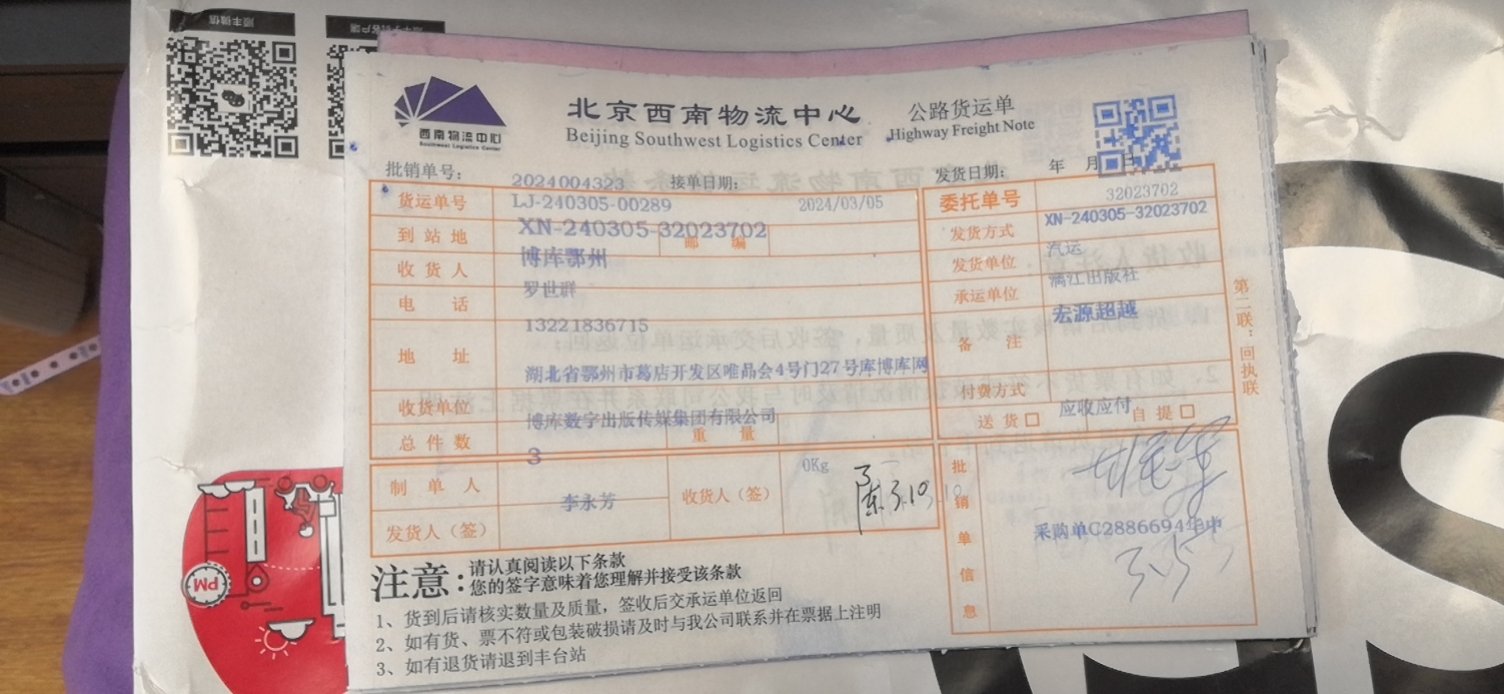 顺丰微信
西南物流中心
Southwest Logistics Center
北京西南物流中心
Beijing Southwest Logistics Center
公路货运单
Highway Freight Note
批销单号: 2024004323 接单日期: 2024/03/05
发货日期: 年 月 日
货运单号 LJ-240305-00289
委托单号 32023702
XN-240305-32023702
到站地 XN-240305-32023702 邮编
发货方式 汽运
收货人 博库鄂州
发货单位 漓江出版社
罗世群
电话 13221836715
承运单位 宏源超越
地址 湖北省鄂州市葛店开发区唯品会4号门27号库博库网
备注
收货单位 博库数字出版传媒集团有限公司
付费方式 应收应付
总件数 3 重量 0Kg
送货□ 自提□
制单人 李永芳
收货人(签) 陈 3.10
发货人(签)
批销单信息 采购单C2886694华中
3.5
第二联:回执联
注意:请认真阅读以下条款
您的签字意味着您理解并接受该条款
1、货到后请核实数量及质量，签收后交承运单位返回
2、如有货、票不符或包装破损请及时与我公司联系并在票据上注明
3、如有退货请退到丰台站
PM